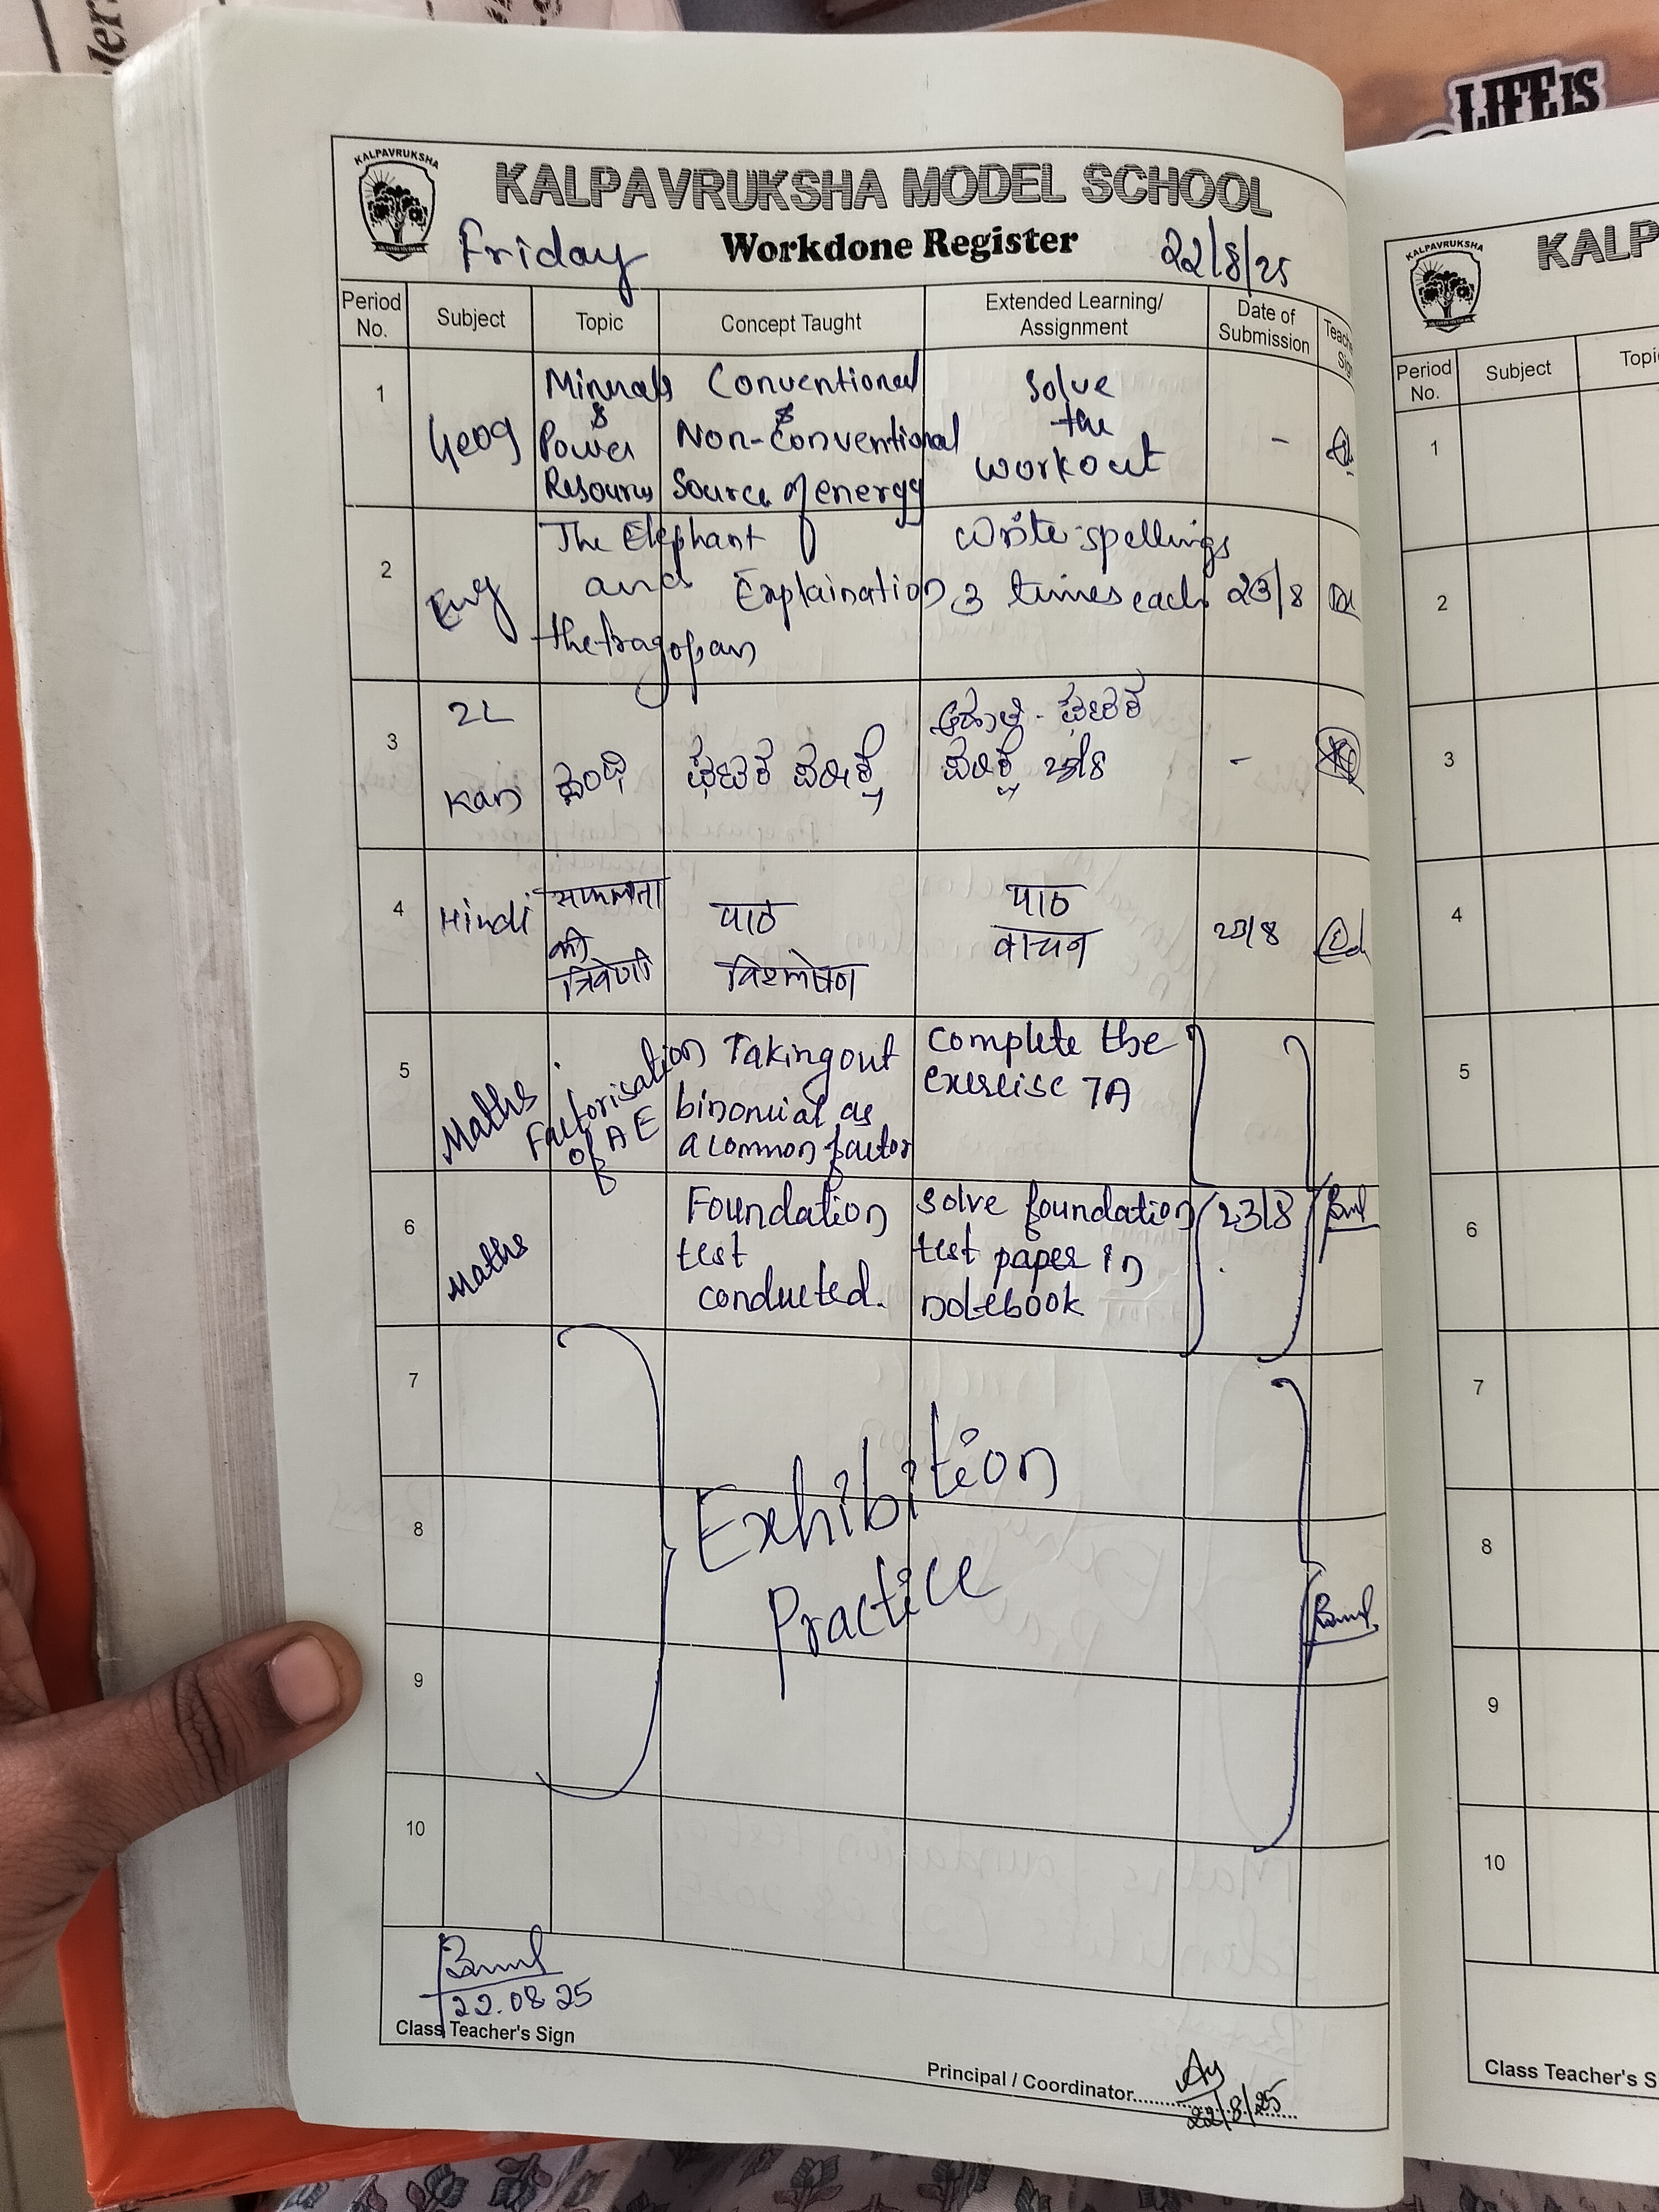 LIFE IS
KALPAVRUKSHA
KALPAVRUKSHA MODEL SCHOOL
Friday
Workdone Register
22/8/25
Period No.
Subject
Topic
Concept Taught
Extended Learning/
Assignment
Date of
Submission
1
Geog
Minerals
&
Power
Resources
Conventional
&
Non-Conventional
Source of energy
Solve
the
workout
-
2
Eng
The Elephant
and
the tragopan
Explaination
Write spellings
3 times each
23/8
3
2L
Kan
ಘಟಕ
-
4
Hindi
सफलता
की
त्रिवेणी
पाठ
विश्लेषण
पाठ
वाचन
23/8
5
Maths
Factorisation
of AE
Taking out
binomial as
a common factor
Complete the
exercise 7A
6
Maths
Foundation
test
conducted.
Solve foundation
test paper in
notebook
23/8
7
8
9
10
Exhibition
Practice
22.08.25
Class Teacher's Sign
Principal / Coordinator
22/8/25
KALPAVRUKSHA
KALP
Period
No.
Subject
Topi
1
2
3
4
5
6
7
8
9
10
Class Teacher's S